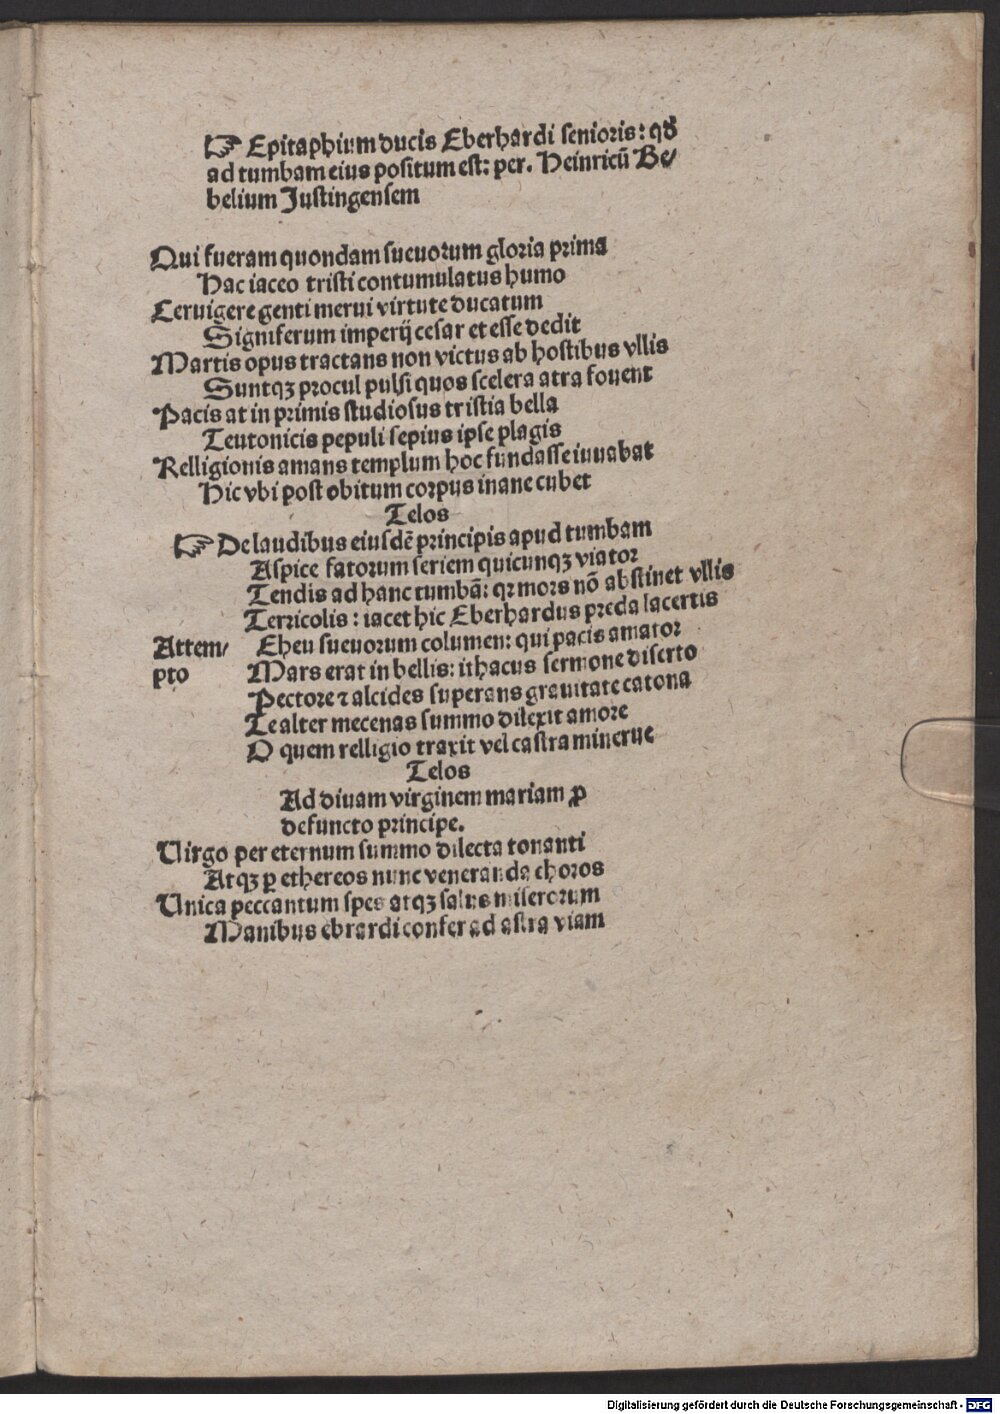 ☞ Epitaphium ducis Eberhardi senioris: qđ
ad tumbam eius positum est: per. Heinricū Be/
belium Justingensem
Qui fueram quondam sueuorum gloria prima
Hac iaceo tristi contumulatus humo
Ceruigere genti merui virtute ducatum
Signiferum imperij cesar et esse dedit
Martis opus tractans non victus ab hostibus vllis
Suntqꝫ procul pulsi quos scelera atra fouent
Pacis at in primis studiosus tristia bella
Teutonicis pepuli sepius ipse plagis
Relligionis amans templum hoc fundasse iuuabat
Hic vbi post obitum corpus inane cubet
Telos
☞ De laudibus eiusdē principis apud tumbam
Aspice fatorum seriem quicunqꝫ viator
Tendis ad hanc tumbā: qꝛ mors nō abstinet vllis
Terricolis: iacet hic Eberhardus preda lacertis
Attem/ Eheu sueuorum columen: qui pacis amator
pto Mars erat in bellis: ithacus sermone diserto
Pectore ⁊ alcides superans grauitate catona
Te alter mecenas summo dilexit amore
O quem relligio traxit vel castra minerue
Telos
Ad diuam virginem mariam ꝓ
defuncto principe.
Uirgo per eternum summo dilecta tonanti
Atqꝫ ꝑ ethereos nunc veneranda choros
Unica peccantum spes atqꝫ salus miserorum
Manibus ebrardi confer ad astra viam
Digitalisierung gefördert durch die Deutsche Forschungsgemeinschaft - DFG